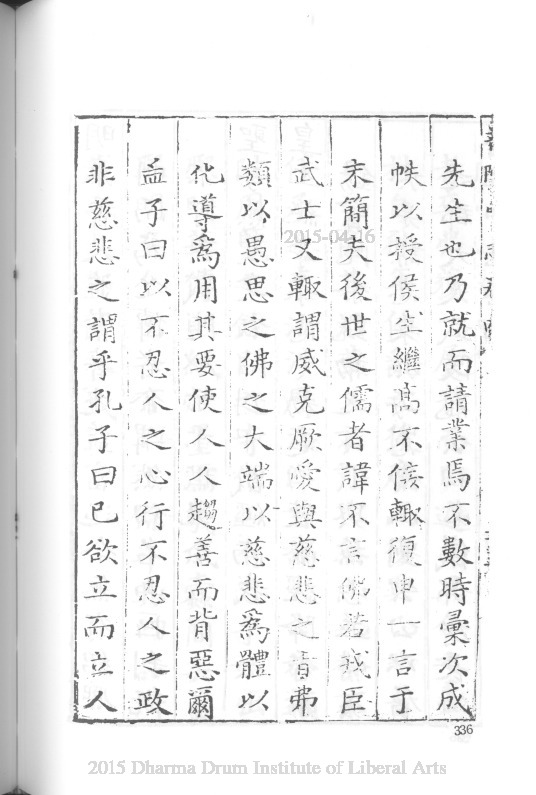 先生也乃就而請業焉不數時彙次成
帙以授侯生繼高不佞輙復申一言于
末簡夫後世之儒者諱不言佛若戎臣
武士又輙謂威克厥愛與慈悲之旨弗
類以愚思之佛之大端以慈悲爲體以
化導爲用其要使人人趨善而背惡爾
孟子曰以不忍人之心行不忍人之政
非慈悲之謂乎孔子曰已欲立而立人
336
2015-04-16
2015 Dharma Drum Institute of Liberal Arts